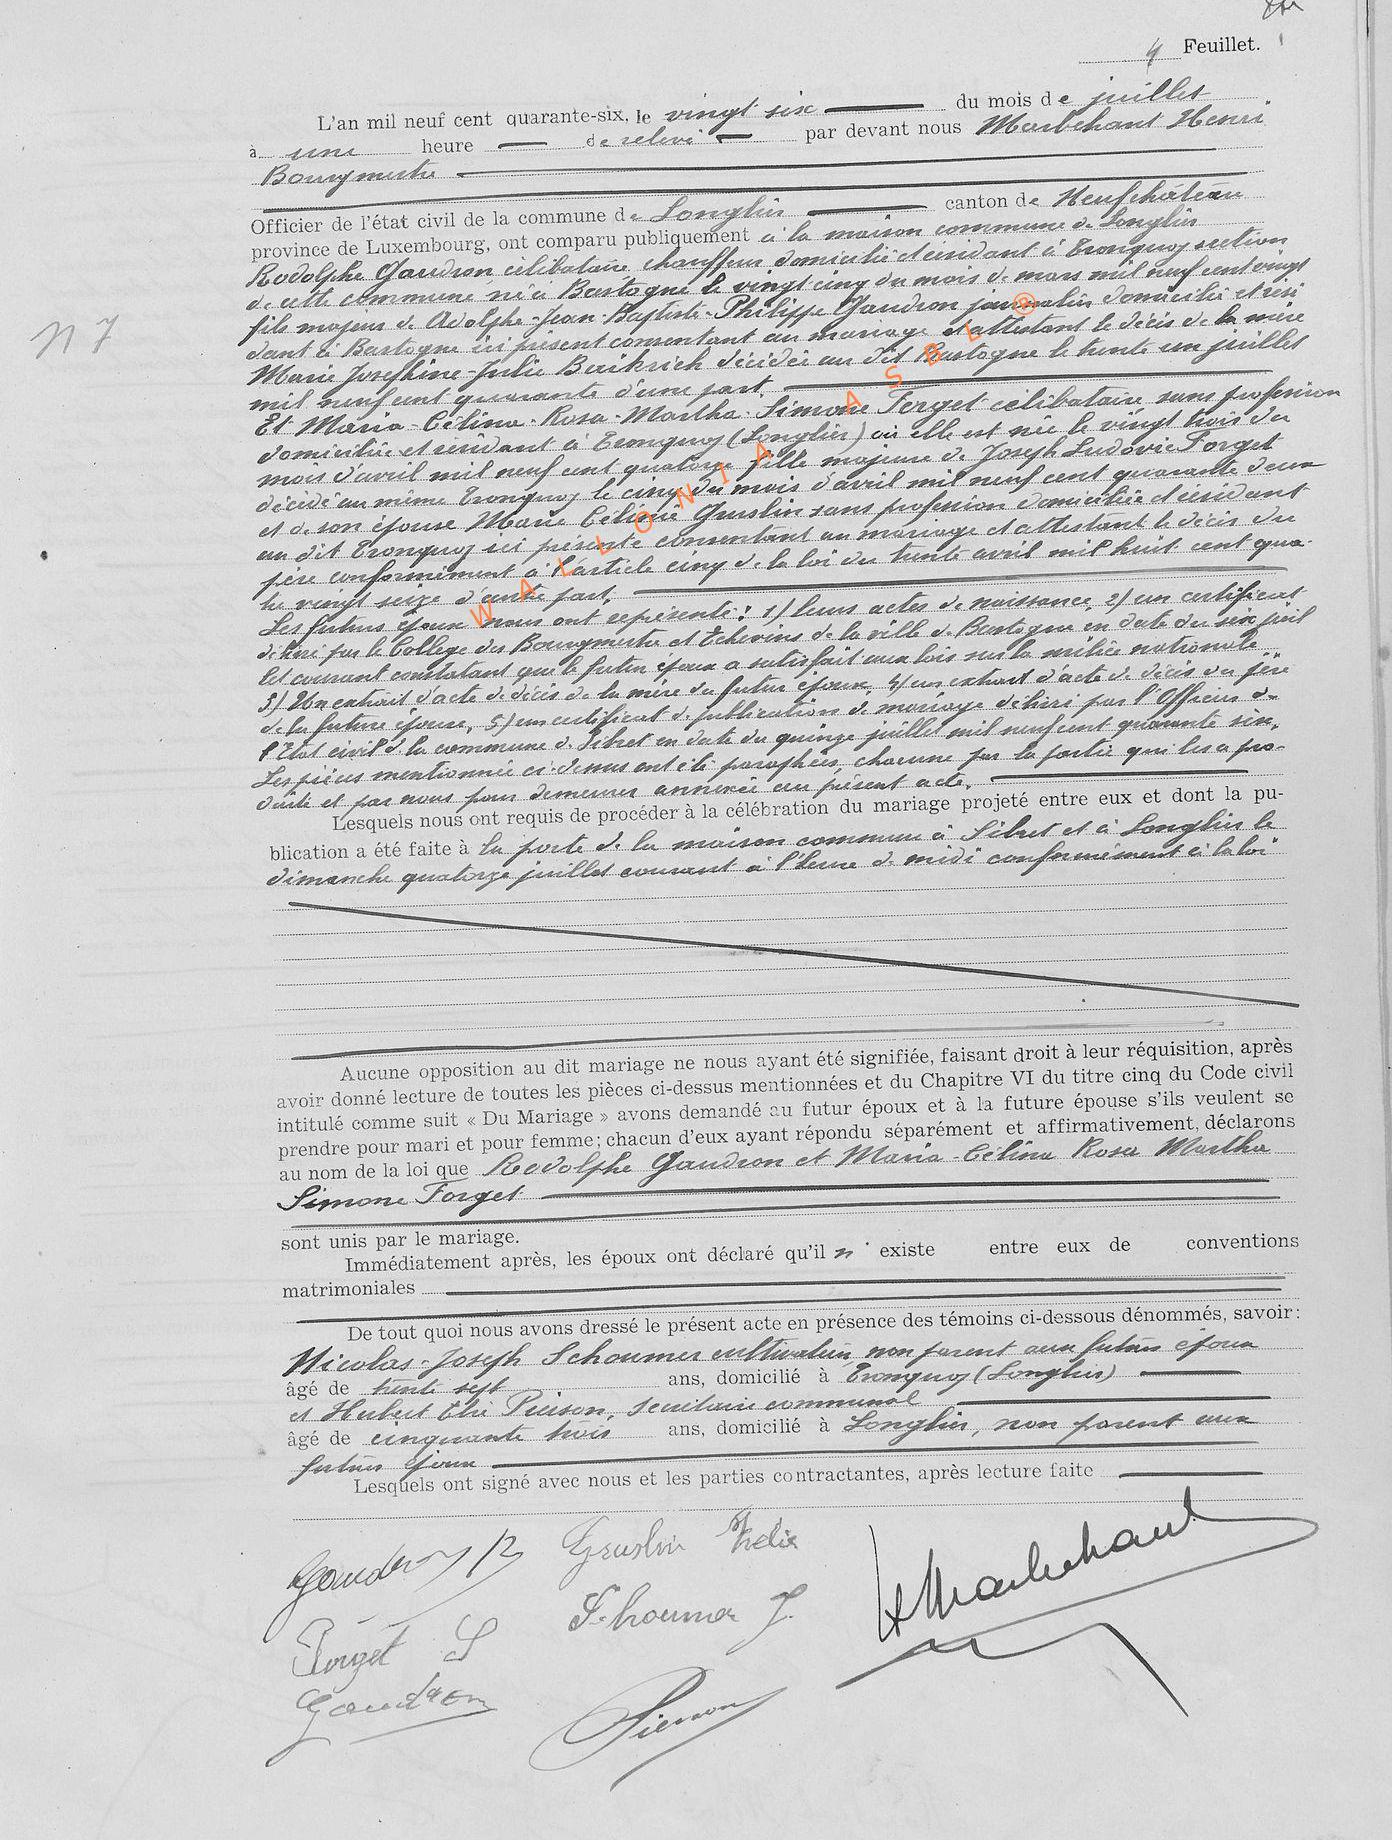 4 Feuillet.
L'an mil neuf cent quarante-six, le vingt six du mois de juillet
à une heure de relevé par devant nous Marbehant Henri
Bourgmestre
Officier de l'état civil de la commune de Longlier canton de Neufchâteau
province de Luxembourg, ont comparu publiquement à la maison commune de Longlier
Rodolphe Gaudron célibataire chauffeur domicilié et résidant à Tronquoy section
de cette commune né à Bastogne le vingt cinq du mois de mars mil neuf cent vingt
fils majeur de Adolphe-Jean-Baptiste-Philippe Gaudron journalier domicilié et rési
dant à Bastogne ici présent consentant au mariage et attestant le décès de la mère
Marie Joséphine-Julie décédée au dit Bastogne le trente un juillet
mil neuf cent quarante d'une part.
Et Maria-Célina-Rosa-Martha-Simone Forget célibataire sans profession
domiciliée et résidant à Tronquoy (Longlier) où elle est née le vingt trois du
mois d'avril mil neuf cent quatorze fille majeure de Joseph Ludovic Forget
décédé au même Tronquoy le cinq du mois d'avril mil neuf cent quarante deux
et de son épouse Marie Céline Gruslin sans profession domiciliée et résidant
au dit Tronquoy ici présente consentant au mariage et attestant le décès du
père conformément à l'article cinq de la loi du trente avril mil huit cent qua-
tre vingt seize d'autre part.
Les futurs époux nous ont représenté : 1) leurs actes de naissance, 2) un certificat
délivré par le Collège des Bourgmestre et Echevins de la ville de Bastogne en date du six juil
let courant constatant que le futur époux a satisfait aux lois sur la milice nationale
3) Un extrait d'acte de décès de la mère du futur époux, 4) un extrait d'acte de décès du père
de la future épouse, 5) un certificat de publication de mariage délivré par l'Officier de
l'Etat civil de la commune de Sibret en date du quinze juillet mil neuf cent quarante six.
Les pièces mentionnée ci-dessus ont été paraphées, chacune par la partie qui les a pro-
duite et par nous pour demeurer annexée au présent acte.
Lesquels nous ont requis de procéder à la célébration du mariage projeté entre eux et dont la pu-
blication a été faite à la porte de la maison commune à Sibret et à Longlier le
dimanche quatorze juillet courant à l'heure de midi conformément à la loi
N 7
WALLONIA ASBL ®
Aucune opposition au dit mariage ne nous ayant été signifiée, faisant droit à leur réquisition, après
avoir donné lecture de toutes les pièces ci-dessus mentionnées et du Chapitre VI du titre cinq du Code civil
intitulé comme suit « Du Mariage » avons demandé au futur époux et à la future épouse s'ils veulent se
prendre pour mari et pour femme; chacun d'eux ayant répondu séparément et affirmativement, déclarons
au nom de la loi que Rodolphe Gaudron et Maria-Célina Rosa Martha
Simone Forget
sont unis par le mariage.
Immédiatement après, les époux ont déclaré qu'il n' existe entre eux de conventions
matrimoniales
De tout quoi nous avons dressé le présent acte en présence des témoins ci-dessous dénommés, savoir :
Nicolas-Joseph Schoumer cultivateur, non parent aux futurs époux
âgé de trente sept ans, domicilié à Tronquoy (Longlier)
et Herbert Elie Pierson, secrétaire communal
âgé de cinquante trois ans, domicilié à Longlier, non parent aux
futurs époux
Lesquels ont signé avec nous et les parties contractantes, après lecture faite
Gaudron R Gruslin
Schoumer J. H Marbehant
Forget S
Gaudron
Pierson